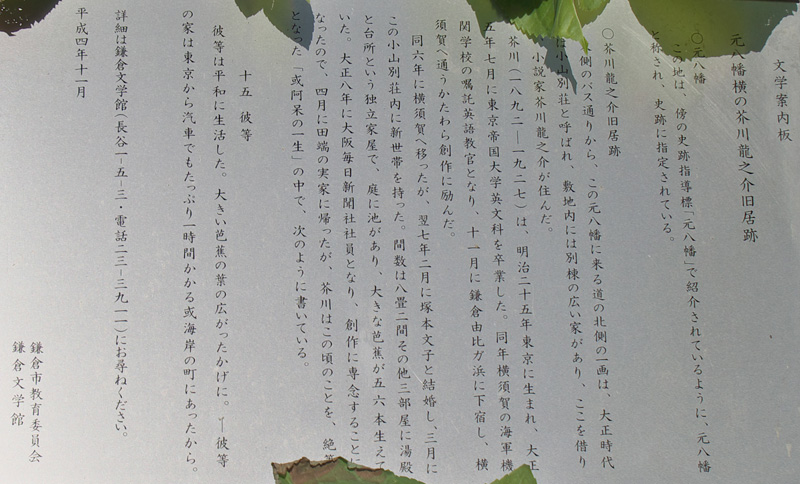 文学案内板
元八幡横の芥川龍之介旧居跡
○元八幡
この地は、傍の史跡指導標「元八幡」で紹介されているように、元八幡
と称され、史跡に指定されている。
○芥川龍之介旧居跡
側のバス通りから、この元八幡に来る道の北側の一画は、大正時代
は小山別荘と呼ばれ、敷地内には別棟の広い家があり、ここを借り
小説家芥川龍之介が住んだ。
芥川(一八九二―一九二七)は、明治二十五年東京に生まれ、大正
五年七月に東京帝国大学英文科を卒業した。同年横須賀の海軍機
関学校の嘱託英語教官となり、十一月に鎌倉由比ガ浜に下宿し、横
須賀へ通うかたわら創作に励んだ。
同六年に横須賀へ移ったが、翌七年二月に塚本文子と結婚し、三月に
この小山別荘内に新世帯を持った。間数は八畳二間その他三部屋に湯殿
と台所という独立家屋で、庭に池があり、大きな芭蕉が五六本生えて
いた。大正八年に大阪毎日新聞社社員となり、創作に専念することに
なったので、四月に田端の実家に帰ったが、芥川はこの頃のことを、絶筆
となった「或阿呆の一生」の中で、次のように書いている。
十五 彼等
彼等は平和に生活した。大きい芭蕉の葉の広がったかげに。―彼等
の家は東京から汽車でもたっぷり一時間かかる或海岸の町にあったから。
詳細は鎌倉文学館(長谷一−五−三・電話二三−三九一一)にお尋ねください。
平成四年十一月
鎌倉市教育委員会
鎌倉文学館